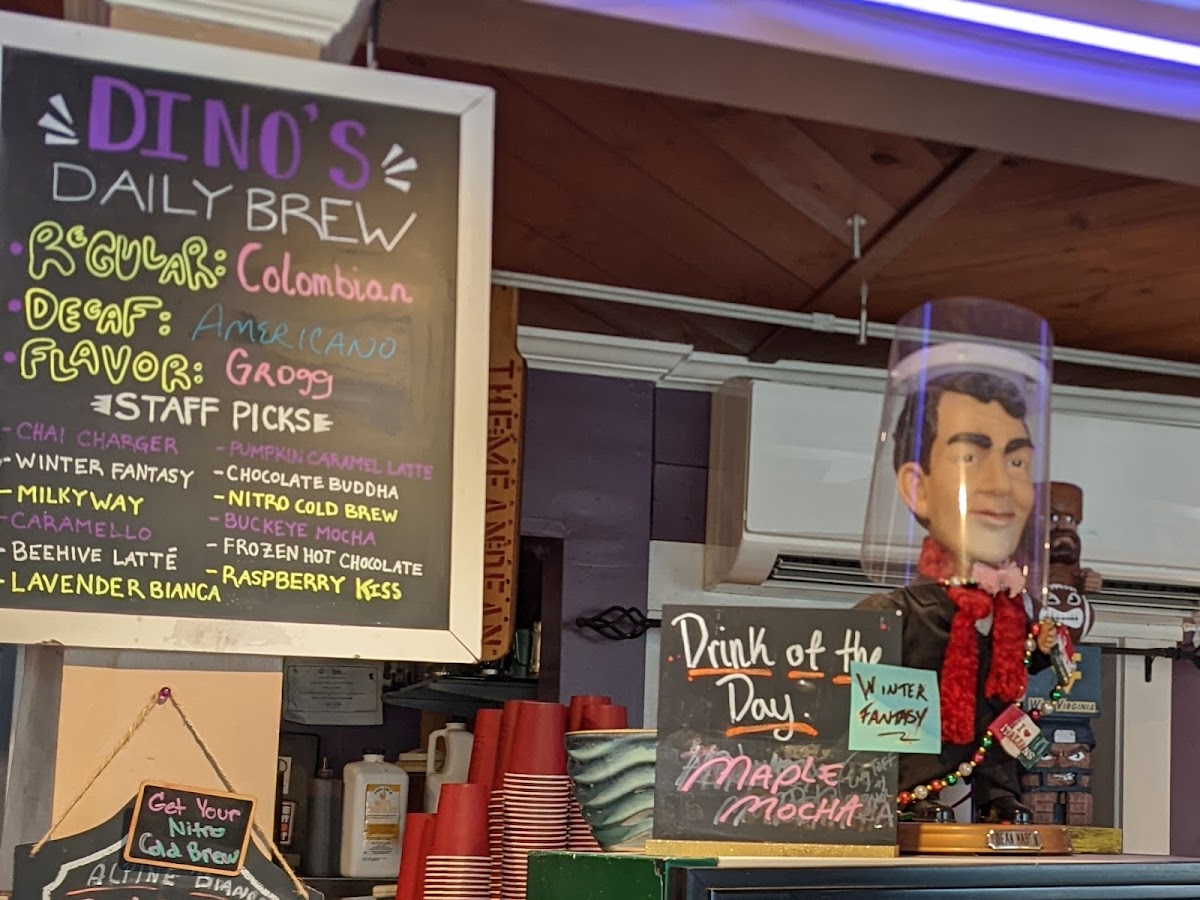 DINO'S
DAILY BREW
REGULAR: Colombian
DECAF: AMERICANO
FLAVOR: GROGG
STAFF PICKS
- CHAI CHARGER
- WINTER FANTASY
- MILKYWAY
- CARAMELLO
- BEEHIVE LATTÉ
- LAVENDER BIANCA
- PUMPKIN CARAMEL LATTE
- CHOCOLATE BUDDHA
- NITRO COLD BREW
- BUCKEYE MOCHA
- FROZEN HOT CHOCOLATE
- RASPBERRY KISS
THEMEANDEAN
Get Your
Nitro
Cold Brew
ALPINE
Drink of the
Day.
WINTER
FANTASY
MAPLE
MOCHA
VIRGINIA
DEAN MARTIN